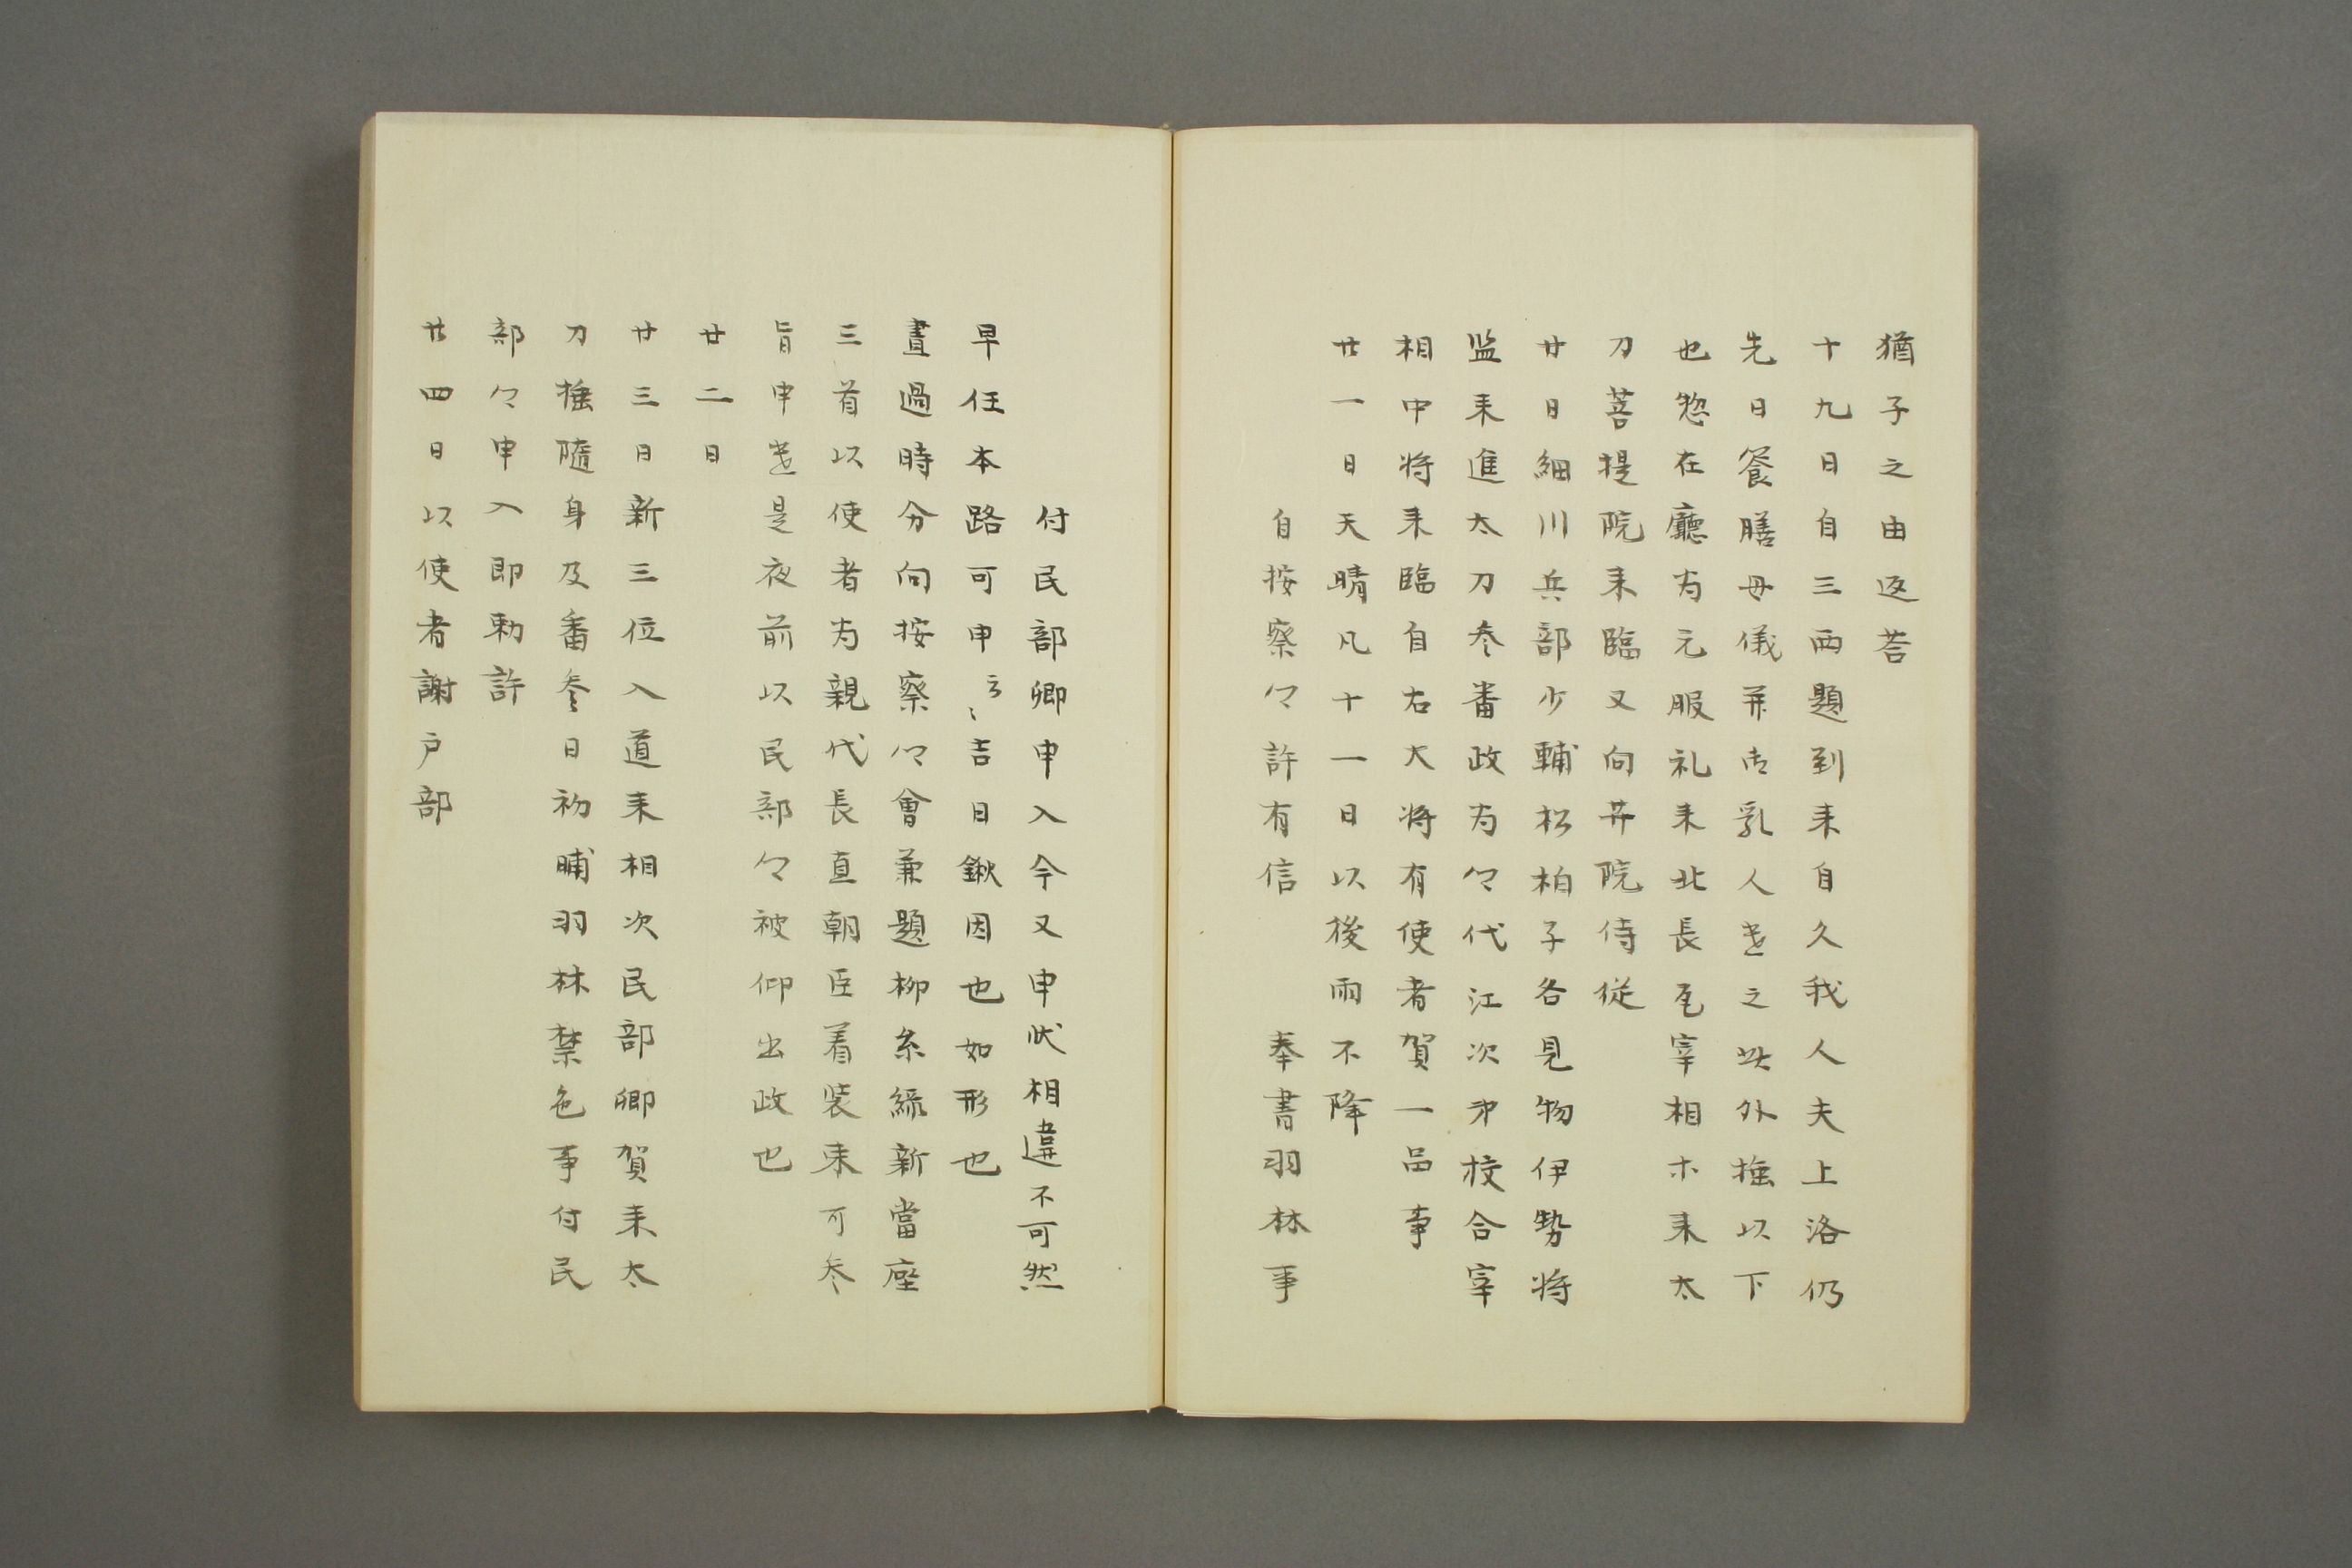 猶子之由返荅
十九日自三西題到来自久我人夫上洛仍
先日餐膳毋儀并古乳人遣之此外㩴以下
也惣在廳为元服礼来北長乱宰相ホ来太
刀菩提院来臨又向井院侍従
廿日細川兵部少輔松柏子各見物伊勢将
监来進太刀参番政为々代江次第校合宰
相中将来臨自右大将有使者賀一品事
廿一日天晴凡十一日以後雨不降
自按察々許有信　奉書羽林事
付民部卿申入今又申状相違不可然
早任本路可申云々吉日鍬因也如形也
晝過時分向按察々會兼題柳糸緑新當座
三首以使者为親代長直朝臣着装束可参
旨申遣是夜前以民部々被仰出政也
廿二日
廿三日新三位入道来相次民部卿賀来太
刀㩴隨身及番参日初晡羽林禁色事付民
部々申入即勅許
廿四日以使者謝戸部